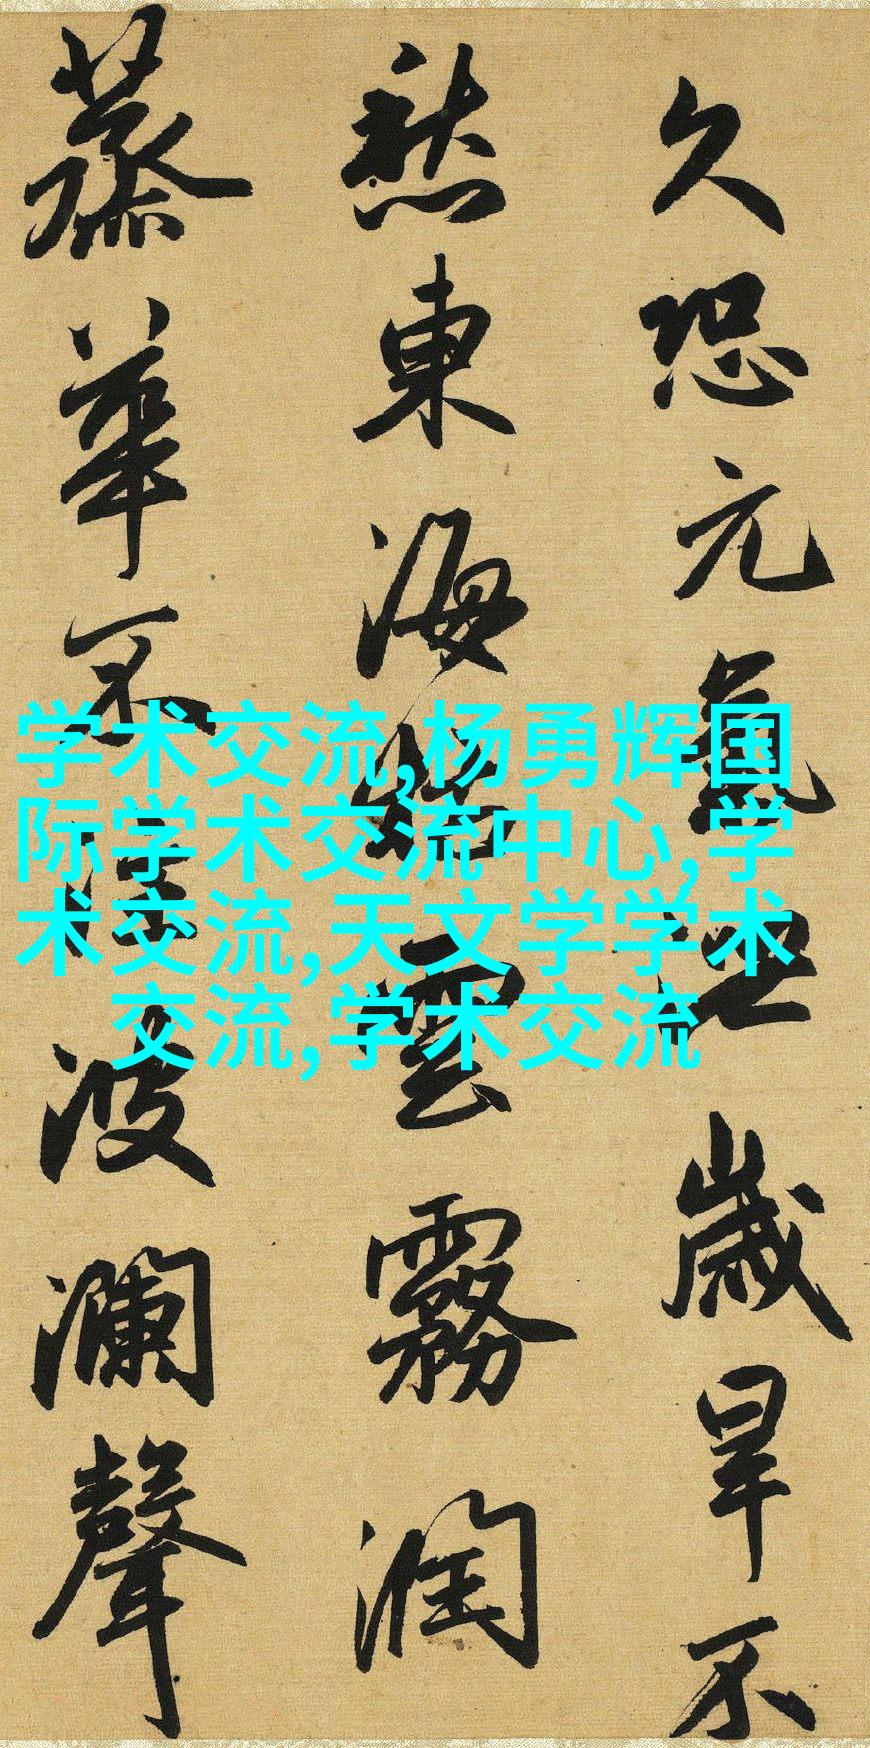 久恐元氣泄歲旱不
愁東海枯雲霧潤
蒸華不注波瀾聲
学术交流,杨勇辉国
际学术交流中心,学
术交流,天文学学术
交流,学术交流